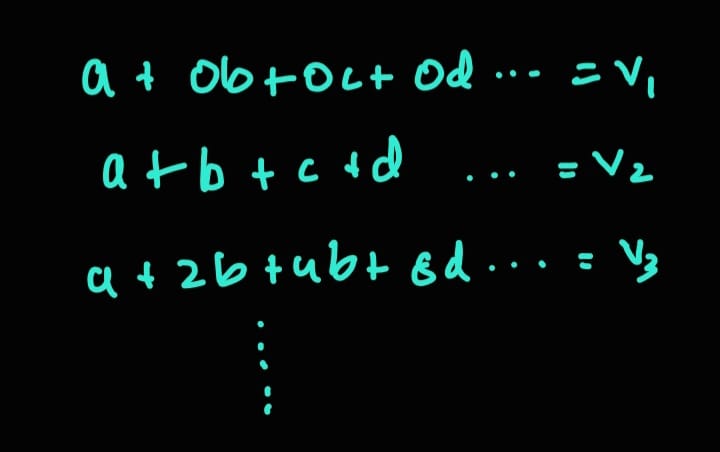 a + 0b + 0c + 0d ... = v₁
a + b + c + d ... = v₂
a + 2b + 4b + 8d ... = v₃